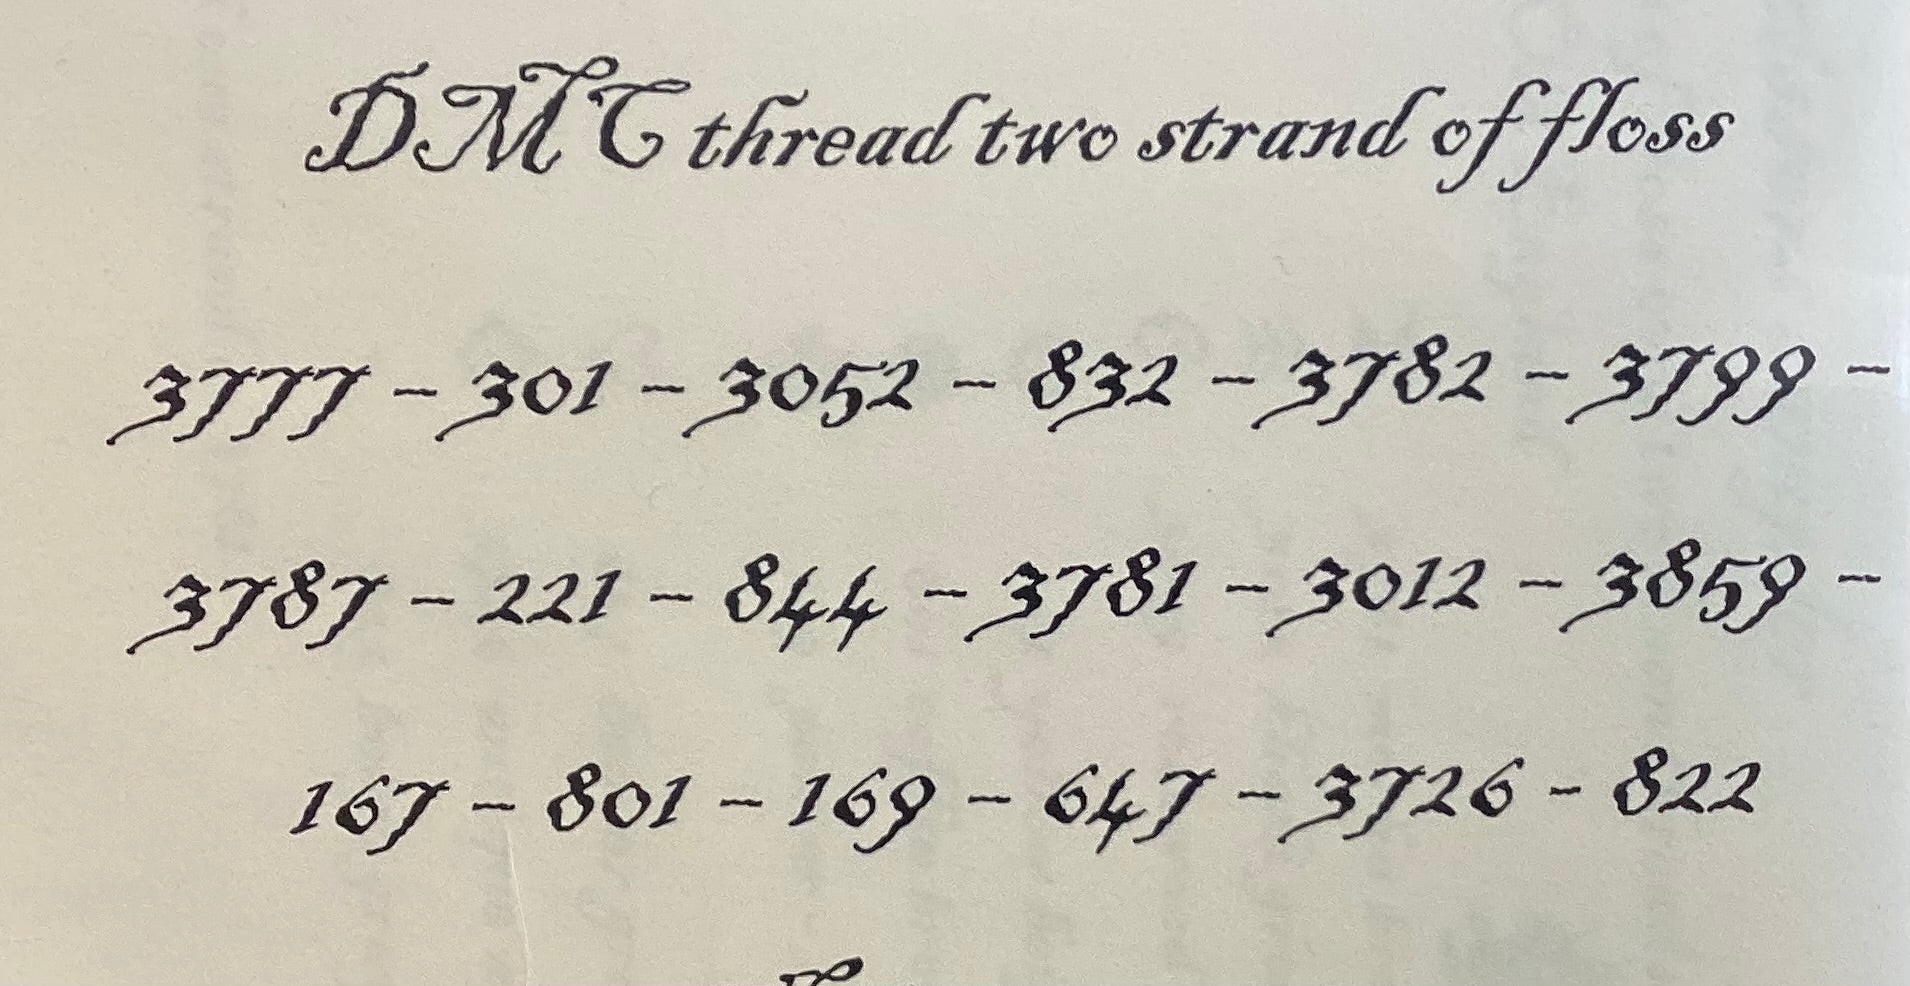 DMC thread two strand of floss
3777 - 301 - 3052 - 832 - 3782 - 3799 -
3787 - 221 - 844 - 3781 - 3012 - 3859 -
167 - 801 - 169 - 647 - 3726 - 822